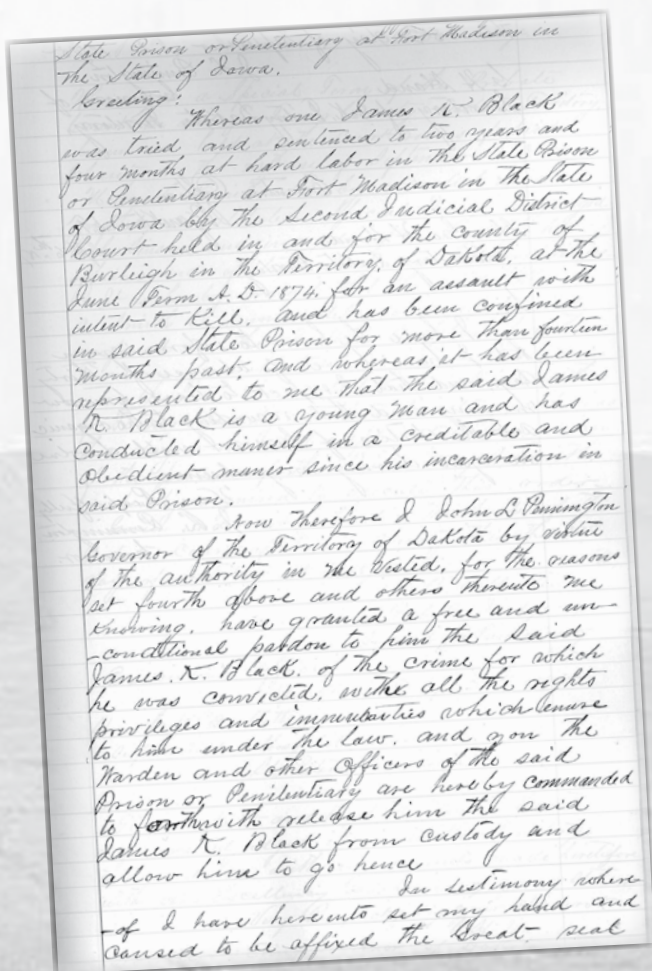 State Prison or Penetentiary at Fort Madison in
the State of Iowa.
Greeting:
Whereas one James K. Black
was tried and sentenced to two years and
four months at hard labor in the State Prison
or Penetentiary at Fort Madison in the State
of Iowa by the Second Judicial District
Court held in and for the county of
Burleigh in the Territory of Dakota, at the
June Term A.D. 1874. for an assault with
intent to Kill. and has been confined
in said State Prison for more than fourteen
months past, and whereas it has been
represented to me that the said James
K. Black is a young man and has
conducted himself in a creditable and
obedient maner since his incarceration in
said Prison.
Now Therefore I John L Pennington
Governor of the Territory of Dakota by virtue
of the authority in me Vested, for the reasons
set fourth above and others thereunto me
knowing. have granted a free and un-
-conditional pardon to him the said
James. K. Black. of the crime for which
he was convicted. with all the rights
privileges and immunities which enure
to him under the law. and you the
Warden and other Officers of the said
Prison or Penitentiary are hereby commanded
to forthwith release him the said
James K. Black from custody and
allow him to go hence
In testimony where-
-of I have hereunto set my hand and
caused to be affixed the Great seal